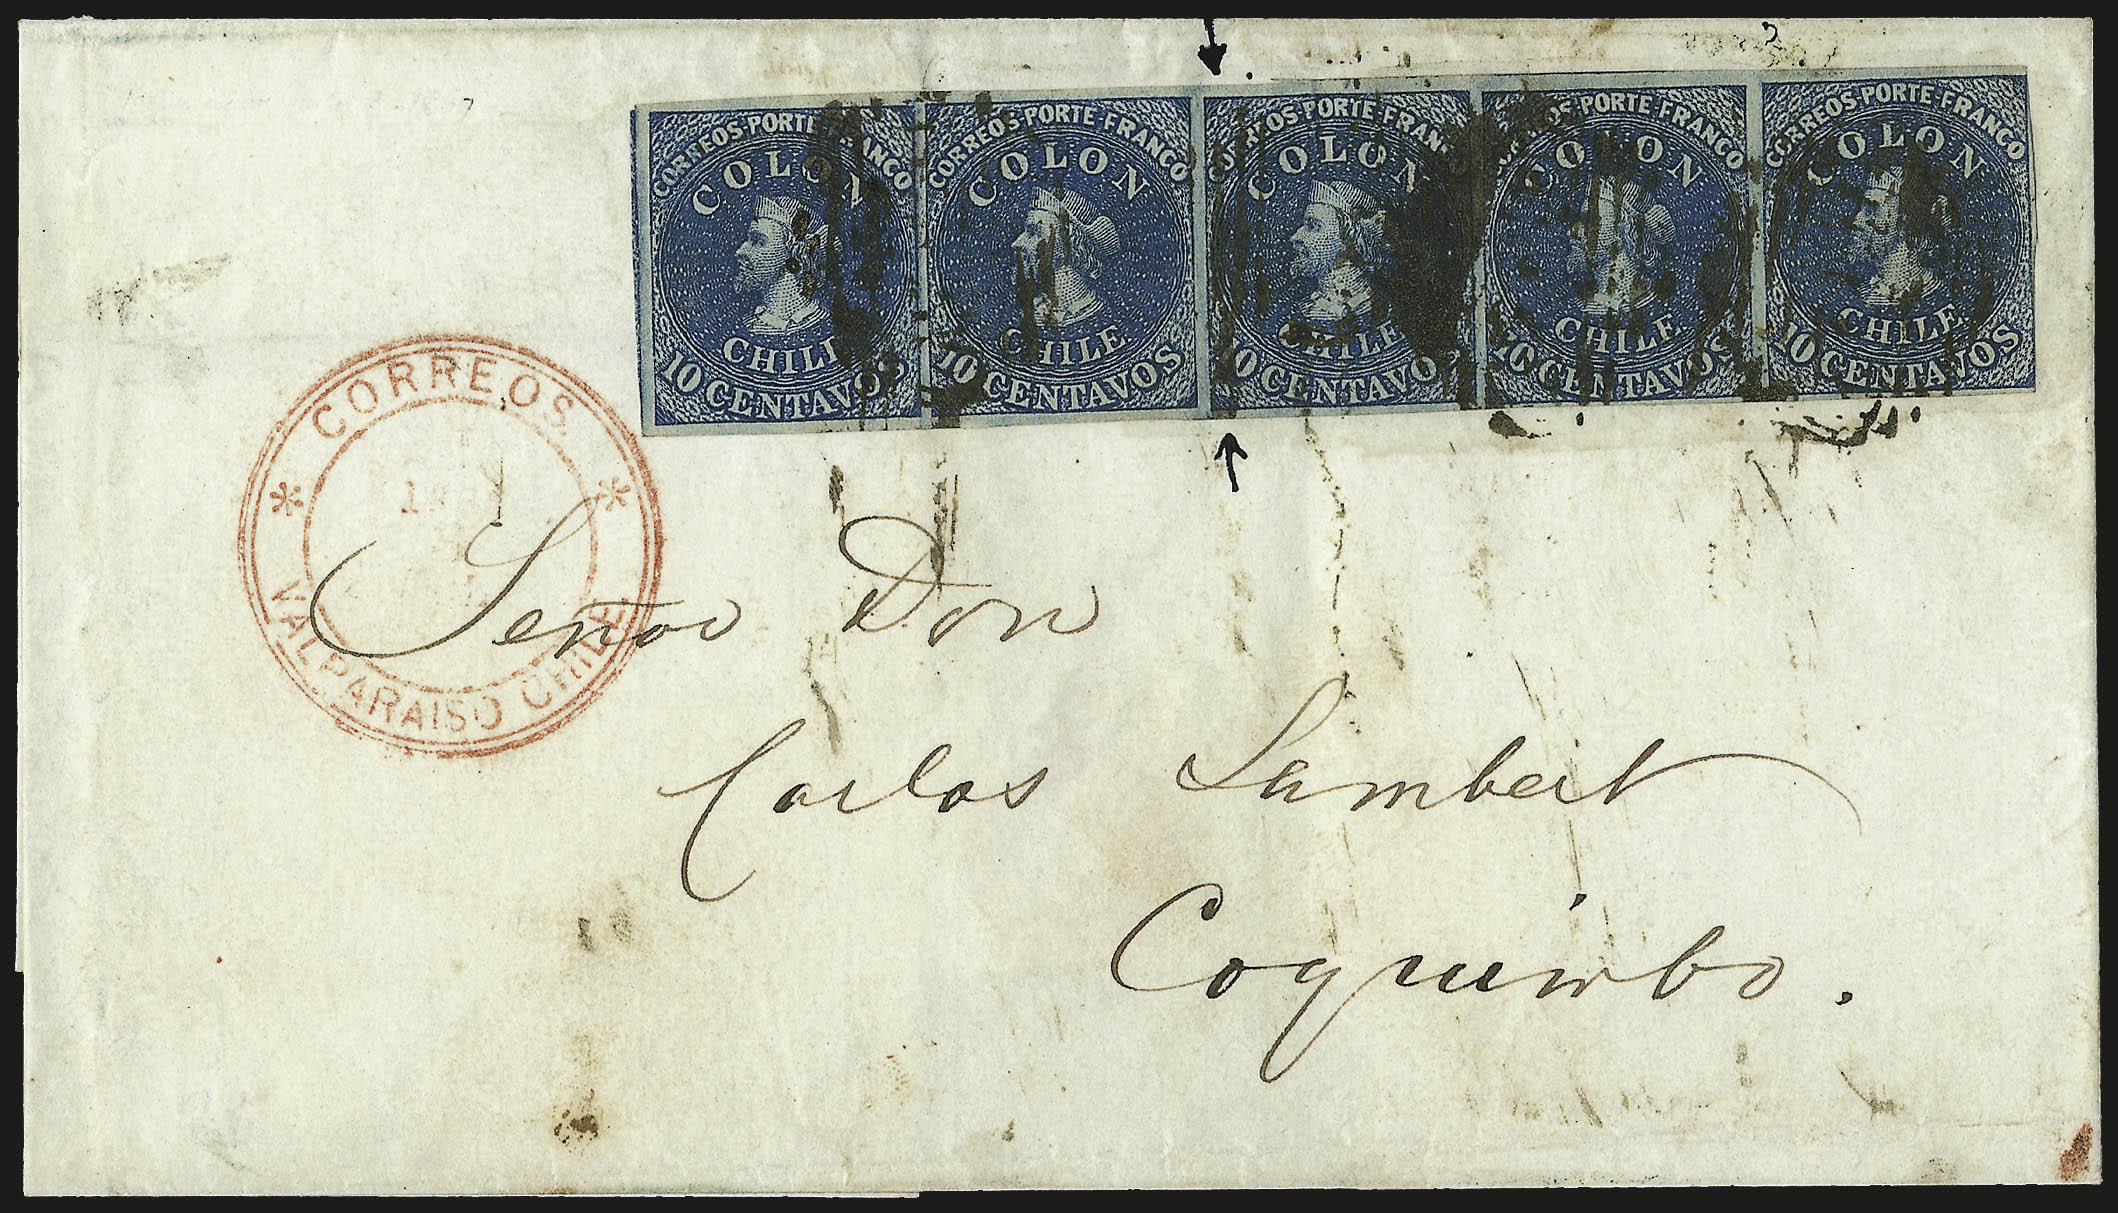 CORREOS PORTE FRANCO
COLON
CHILE
10 CENTAVOS
CORREOS PORTE FRANCO
COLON
CHILE
10 CENTAVOS
CORREOS PORTE FRANCO
COLON
CHILE
10 CENTAVOS
CORREOS PORTE FRANCO
COLON
CHILE
10 CENTAVOS
CORREOS PORTE FRANCO
COLON
CHILE
10 CENTAVOS
* CORREOS *
VALPARAISO CHILE
Señor Don
Carlos Lambert
Coquimbo.